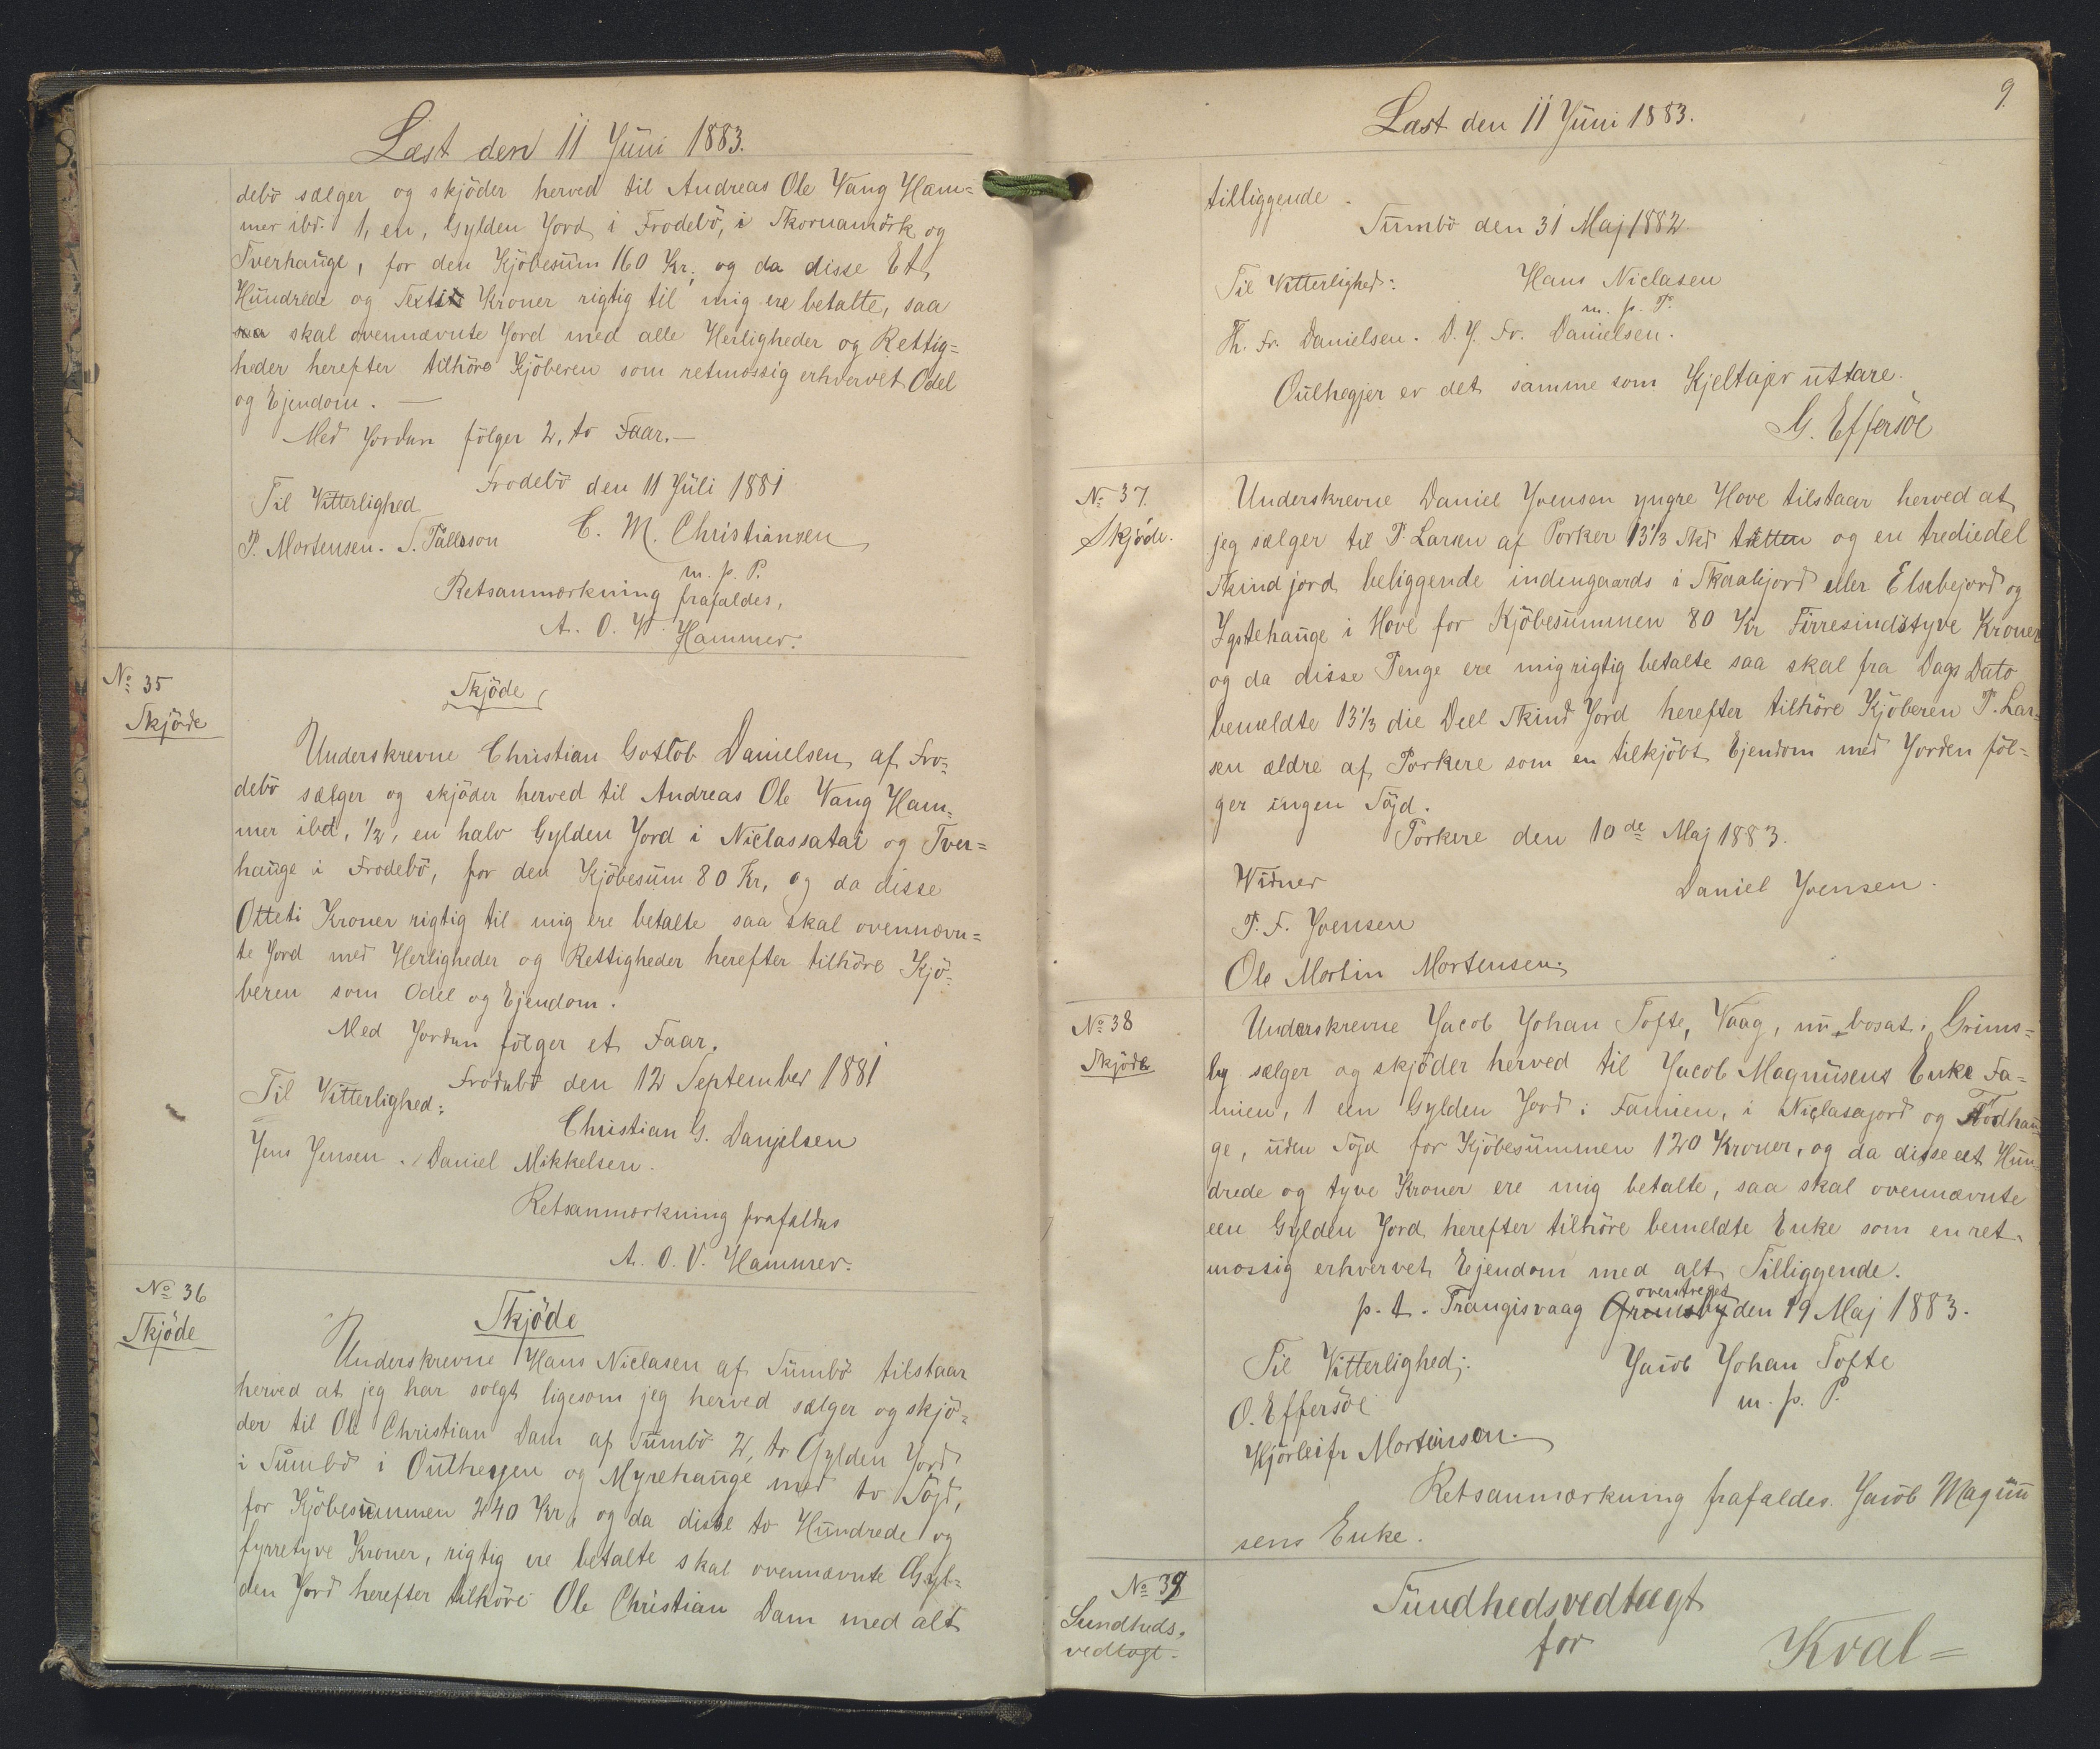 Læst den 11 Juni 1883.
debö sælger og skjöder herved til Andreas Ole Vang Ham=
mer ibd. 1, en, Gylden Jord i Frodebö, i Skornamörk og
Tverhauge, for den Kjöbesum 160 Kr. og da disse Et
Hundrede og Sexti Kroner rigtig til mig ere betalte, saa
saa skal ovennævnte Jord med alle Herligheder og Rettig=
heder herefter tilhöre Kjöberen som retmæssig erhvervet Odel
og Ejendom. —
Med Jorden fölger 2, to Faar. —
Frodebö den 11 Juli 1881
Til Vitterlighed
P. Mortensen. S. Pállsson C. M. Christiansen
m. p. P.
Retsanmærkning frafaldes,
A. O. V. Hammer.
No 35
Skjöde
Skjöde
Underskrevne Christian Gotlob Danielsen af Fro=
debö sælger og skjöder herved til Andreas Ole Vang Ham=
mer ibd, 1/2, en halv Gylden Jord i Niclassatai og Tver=
hauge i Frodebö, for den Kjöbesum 80 Kr, og da disse
Otteti Kroner rigtig til mig ere betalte saa skal ovennævn=
te Jord med Herligheder og Rettigheder herefter tilhöre Kjö=
beren som Odel og Ejendom.
Med Jorden fölger et Faar.
Frodebö den 12 September 1881
Til Vitterlighed:
Christian G. Danjelsen
Jens Jensen. Daniel Mikkelsen.
Retsanmærkning frafaldes
A. O. V. Hammer.
No 36
Skjöde
Skjöde
Underskrevne Hans Niclasen af Sumbö tilstaar
herved at jeg har solgt ligesom jeg herved sælger og skjö=
der til Ole Christian Dam af Sumbö 2, to Gylden Jord
i Sumbö i Outhegjen og Myrehauge med to Söjd,
for Kjöbesummen 240 Kr, og da disse to Hundrede og
fyrretyve Kroner, rigtig ere betalte skal ovennævnte Gyl=
den Jord herefter tilhöre Ole Christian Dam med alt
9.
Læst den 11 Juni 1883.
tilliggende.
Sumbö den 31 Maj 1882.
Til Vitterlighed: Hans Niclasen
m. p. P.
Th. Fr. Danielsen. D. J. Fr. Danielsen.
Oulhegjer er det samme som Kjeltajer uttare.
G. Effersöe
No 37.
Skjöde.
Underskrevne Daniel Joensen yngre Hove tilstaar herved at
jeg sælger til P. Larsen af Porker 13 1/3 Skd tretten og en trediedel
Skind jord beliggende indengaards i Skaalijord eller Elsebejord og
Ygstehauge i Hove for Kjöbesummen 80 Kr Firresindstyve Kroner
og da disse Penge ere mig rigtig betalte saa skal fra Dags Dato
bemeldte 13 1/3 die Deel Skind Jord herefter tilhöre Kjöberen P. Lar=
sen ældre af Porkere som en tilkjöbt Ejendom med Jorden föl=
ger ingen Söjd.
Porkere den 10de Maj 1883.
Vidner
Daniel Joensen.
P. F. Joensen
Ole Martin Mortensen.
No 38
Skjöde
Underskrevne Jacob Johan Tofte, Vaag, nu bosat i Grims=
by sælger og skjöder herved til Jacob Magnusens Enke Fa=
mien, 1 een Gylden Jord i Famien, i Niclasajord og Nordhau=
ge, uden Söjd for Kjöbesummen 120 Kroner, og da disse eet Hun=
drede og tyve Kroner ere mig betalte, saa skal ovennævnte
een Gylden Jord herefter tilhöre bemeldte Enke som en ret=
mæssig erhvervet Ejendom med alt Tilliggende.
overstreget
p. t. Trangisvaag Grimsby den 19 Maj 1883.
Til Vitterlighed: Jacob Johan Tofte
m. p. P.
O. Effersöe
Hjörleifr Mortensen.
Retsanmærkning frafaldes. Jacob Magnu
sens Enke.
No 39
Sundheds=
vedtægt.
Sundhedsvedtægt
for
Kval=